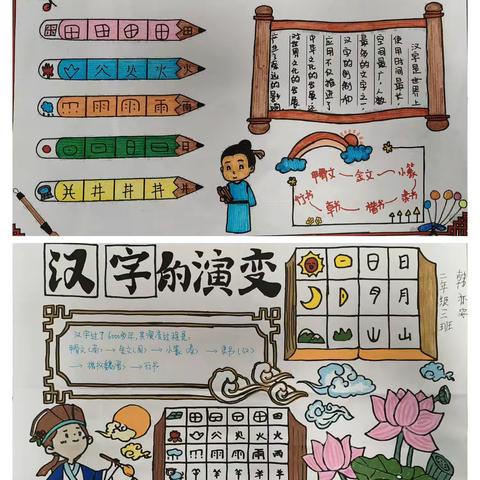 田 田 田 田 田
火 火
雨 雨 雨
日 日 日
井 井 井 井
汉字是世界上
使用时间最长,
空间最广,人数
最多的文字之一
汉字的创制和
应用不仅推进了
中华文化的发展,还
对世界文化的发展
产生了深远的影响
鸭文 金文 小篆
隶书
楷书
竹书
汉字的演变
韩
二年级三班
汉字过了6000多年,其演变过程是:
鸭文(商)→金文(周)→小篆(秦)→隶书(汉)
→楷书(魏晋)→行书
日 日
月 月
山 山
田 田 田 田
火 火
雨 雨
羊 羊